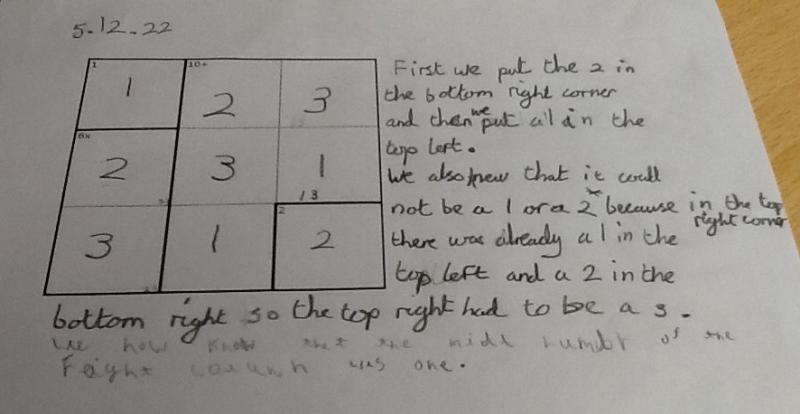 5.12.22
1 10+
1 2 3
6x
2 3 1
1 3
2
3 1 2
First we put the 2 in
the bottom right corner
and then we put a 1 in the
top left.
We also knew that it could
not be a 1 or a 2 because in the top right corner
there was already a 1 in the
top left and a 2 in the
bottom right so the top right had to be a 3.
We now know that the midl numbr of the
column was one.